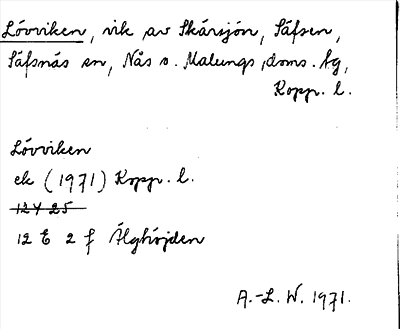 Lövviken, vik av Skärsjön, Säfsen,
Säfsnäs sn, Nås o. Malungs doms. tg,
Kopp. l.
Lövviken
ek (1971) Kopp. l.
12 Y 25
12 E 2 f Älghöjden
A.-L. W. 1971.